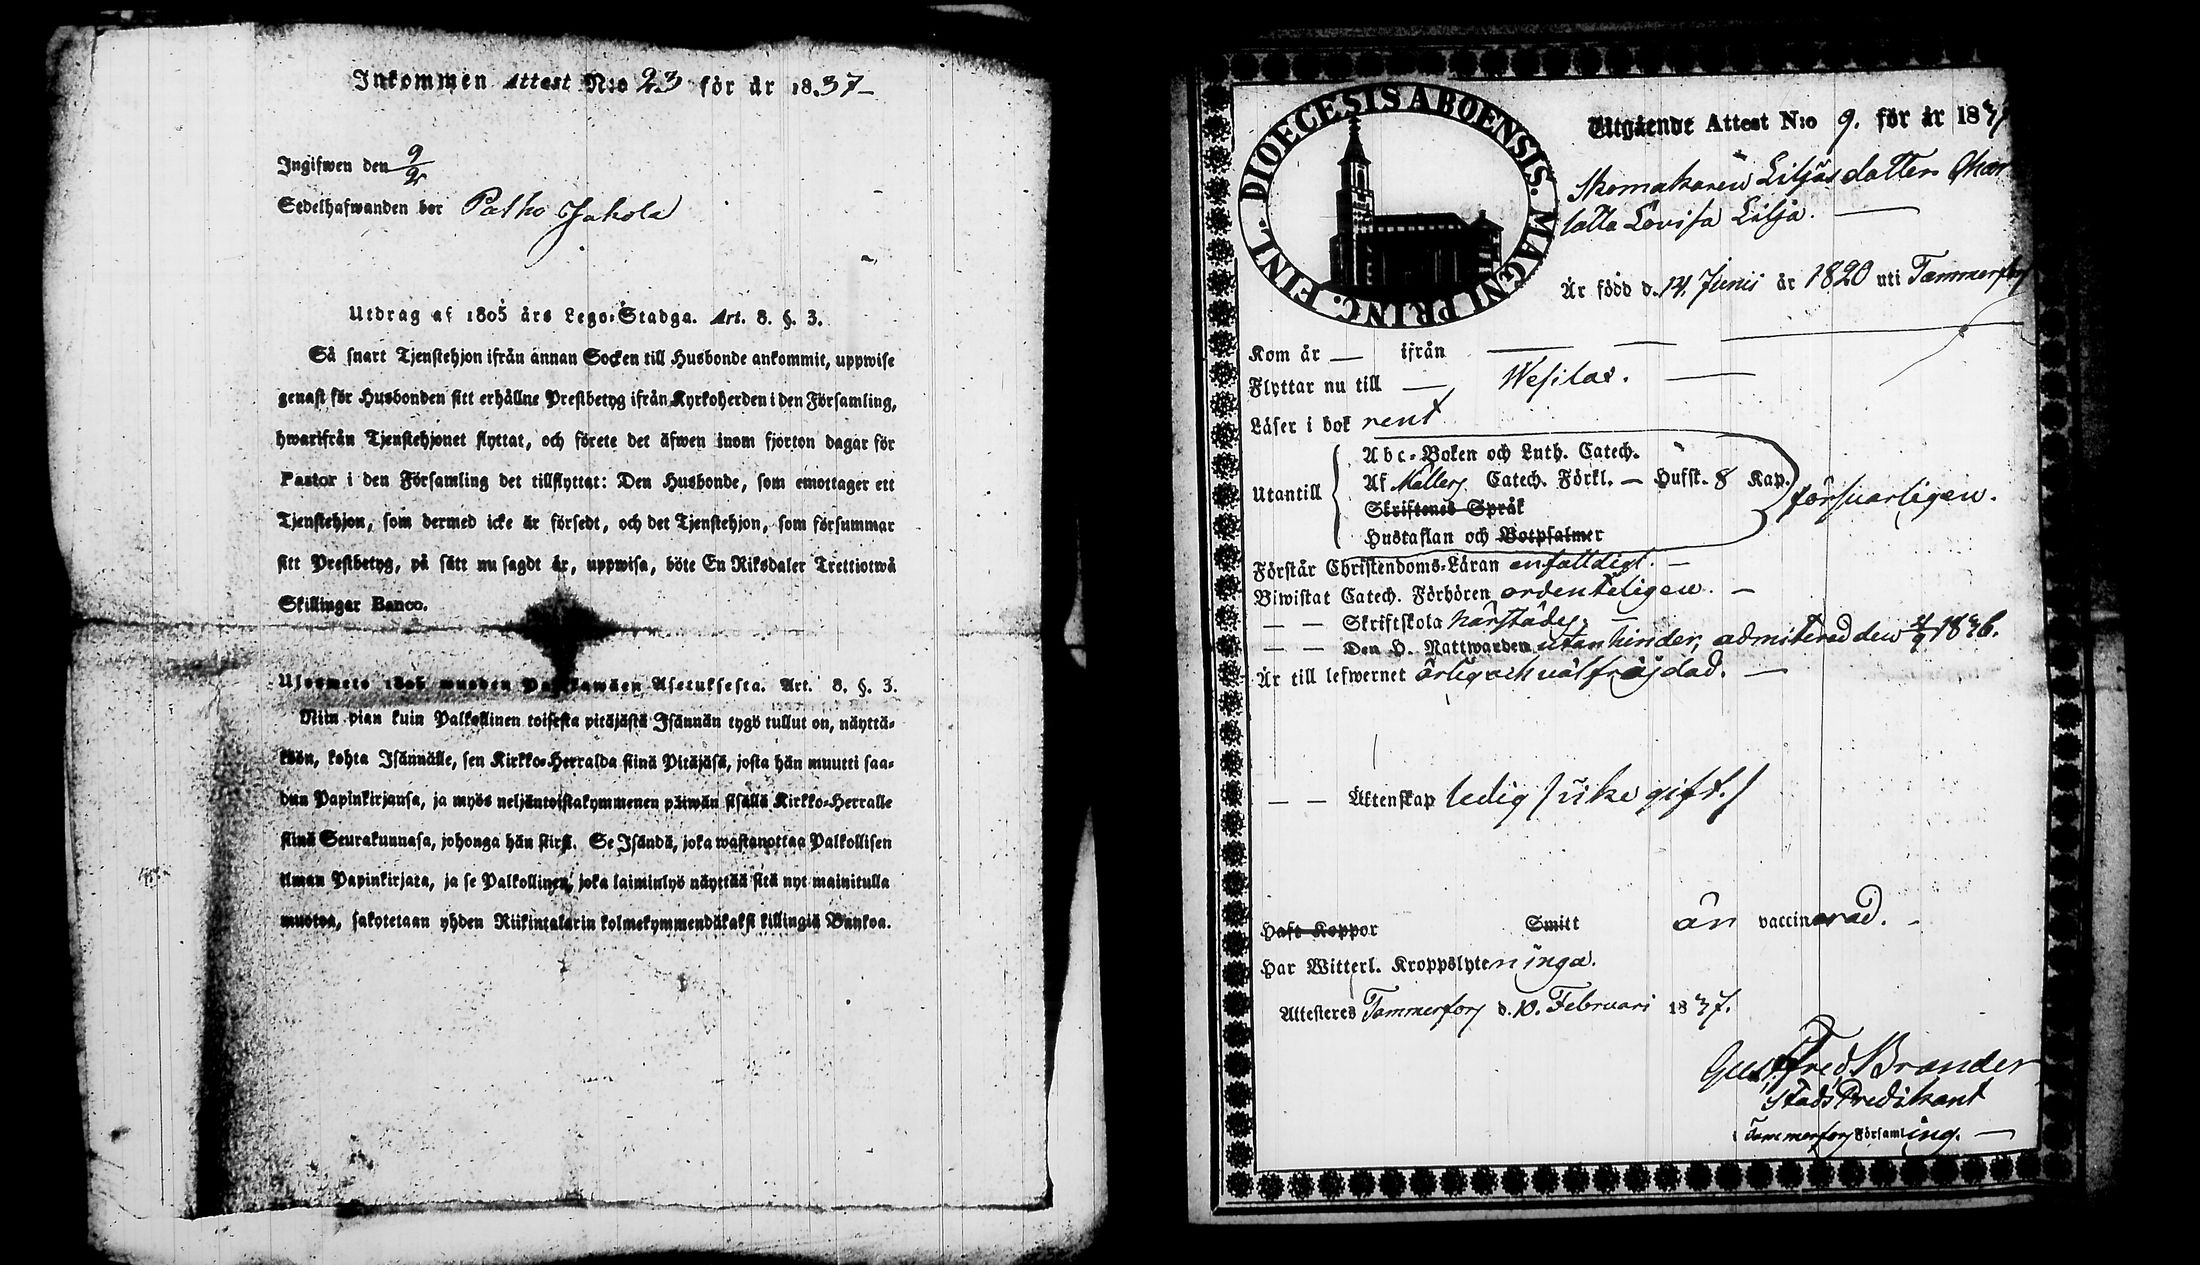 Inkommen Attest N:o 23 för år 1837
Ingifwen den 9/2
Sedelhafwanden bor Palho Jakola
Utdrag af 1805 års Lego-Stadga. Art. 8. §. 3.
Så snart Tjenstehjon ifrån annan Socken till Husbonde ankommit, uppwise
genast för Husbonden sitt erhållne Prestbetyg ifrån Kyrkoherden i den Församling,
hwarifrån Tjenstehjonet flyttat, och förete det äfwen inom fjorton dagar för
Pastor i den Församling det tillflyttat: Den Husbonde, som emottager ett
Tjenstehjon, som dermed icke är försedt, och det Tjenstehjon, som försummar
sitt Prestbetyg, på sätt nu sagdt är, uppwisa, böte En Riksdaler Trettiotwå
Skillingar Banco.
Ulosweto 1805 wuoden Palkkawäen Asetuksesta. Art. 8. §. 3.
Niin pian kuin Palkollinen toisesta pitäjästä Isännän tygö tullut on, näyttä-
köön, kohta Isännälle, sen Kirkko-Herralda siinä Pitäjäsä, josta hän muutti saa-
dun Papinkirjansa, ja myös neljäntoistakymmenen päiwän sisällä Kirkko-Herralle
siinä Seurakunnasa, johonga hän siirsi. Se Isändä, joka wastanottaa Palkollisen
ilman Papinkirjata, ja se Palkollinen, joka laiminlyö näyttää sitä nyt mainitulla
muotoa, sakotetaan yhden Riikintalarin kolmekymmendäkaksi killingiä Bankoa.
DIOECESIS ABOENSIS. MAGNI PRINC. FINL.
Utgående Attest N:o 9. för år 1837
Skomakaren Liljas dotter Char
lotta Lovisa Lilja.
Är född d. 14. Junii år 1820 uti Tammerfors
Kom år — ifrån
Flyttar nu till — Wesilax.
Läser i bok rent
Utantill
Abc-Boken och Luth. Catech.
Af Möllers Catech. Förkl. — Husst. 8 Kap.
Skriftenes Språk
Hustaflan och Botpsalmer
försvarligen.
Förstår Christendoms-Läran enfalldigt. —
Biwistat Catech. Förhören ordenteligen. —
— — Skriftskola härstädes. —
— — Den H. Nattwarden utan hinder, admitterad den 4/9 1836.
Är till lefwernet ärlig och välfräjdad. —
— — Äktenskap ledig /: icke gift. :/
Haft Koppor Smitt än vaccinerad. —
Har Witterl. Kroppslyten inga.
Attesteres Tammerfors d. 10. Februari 1837.
Gust. Fred. Brander
Stads Predikant
i Tammerfors Församling. —